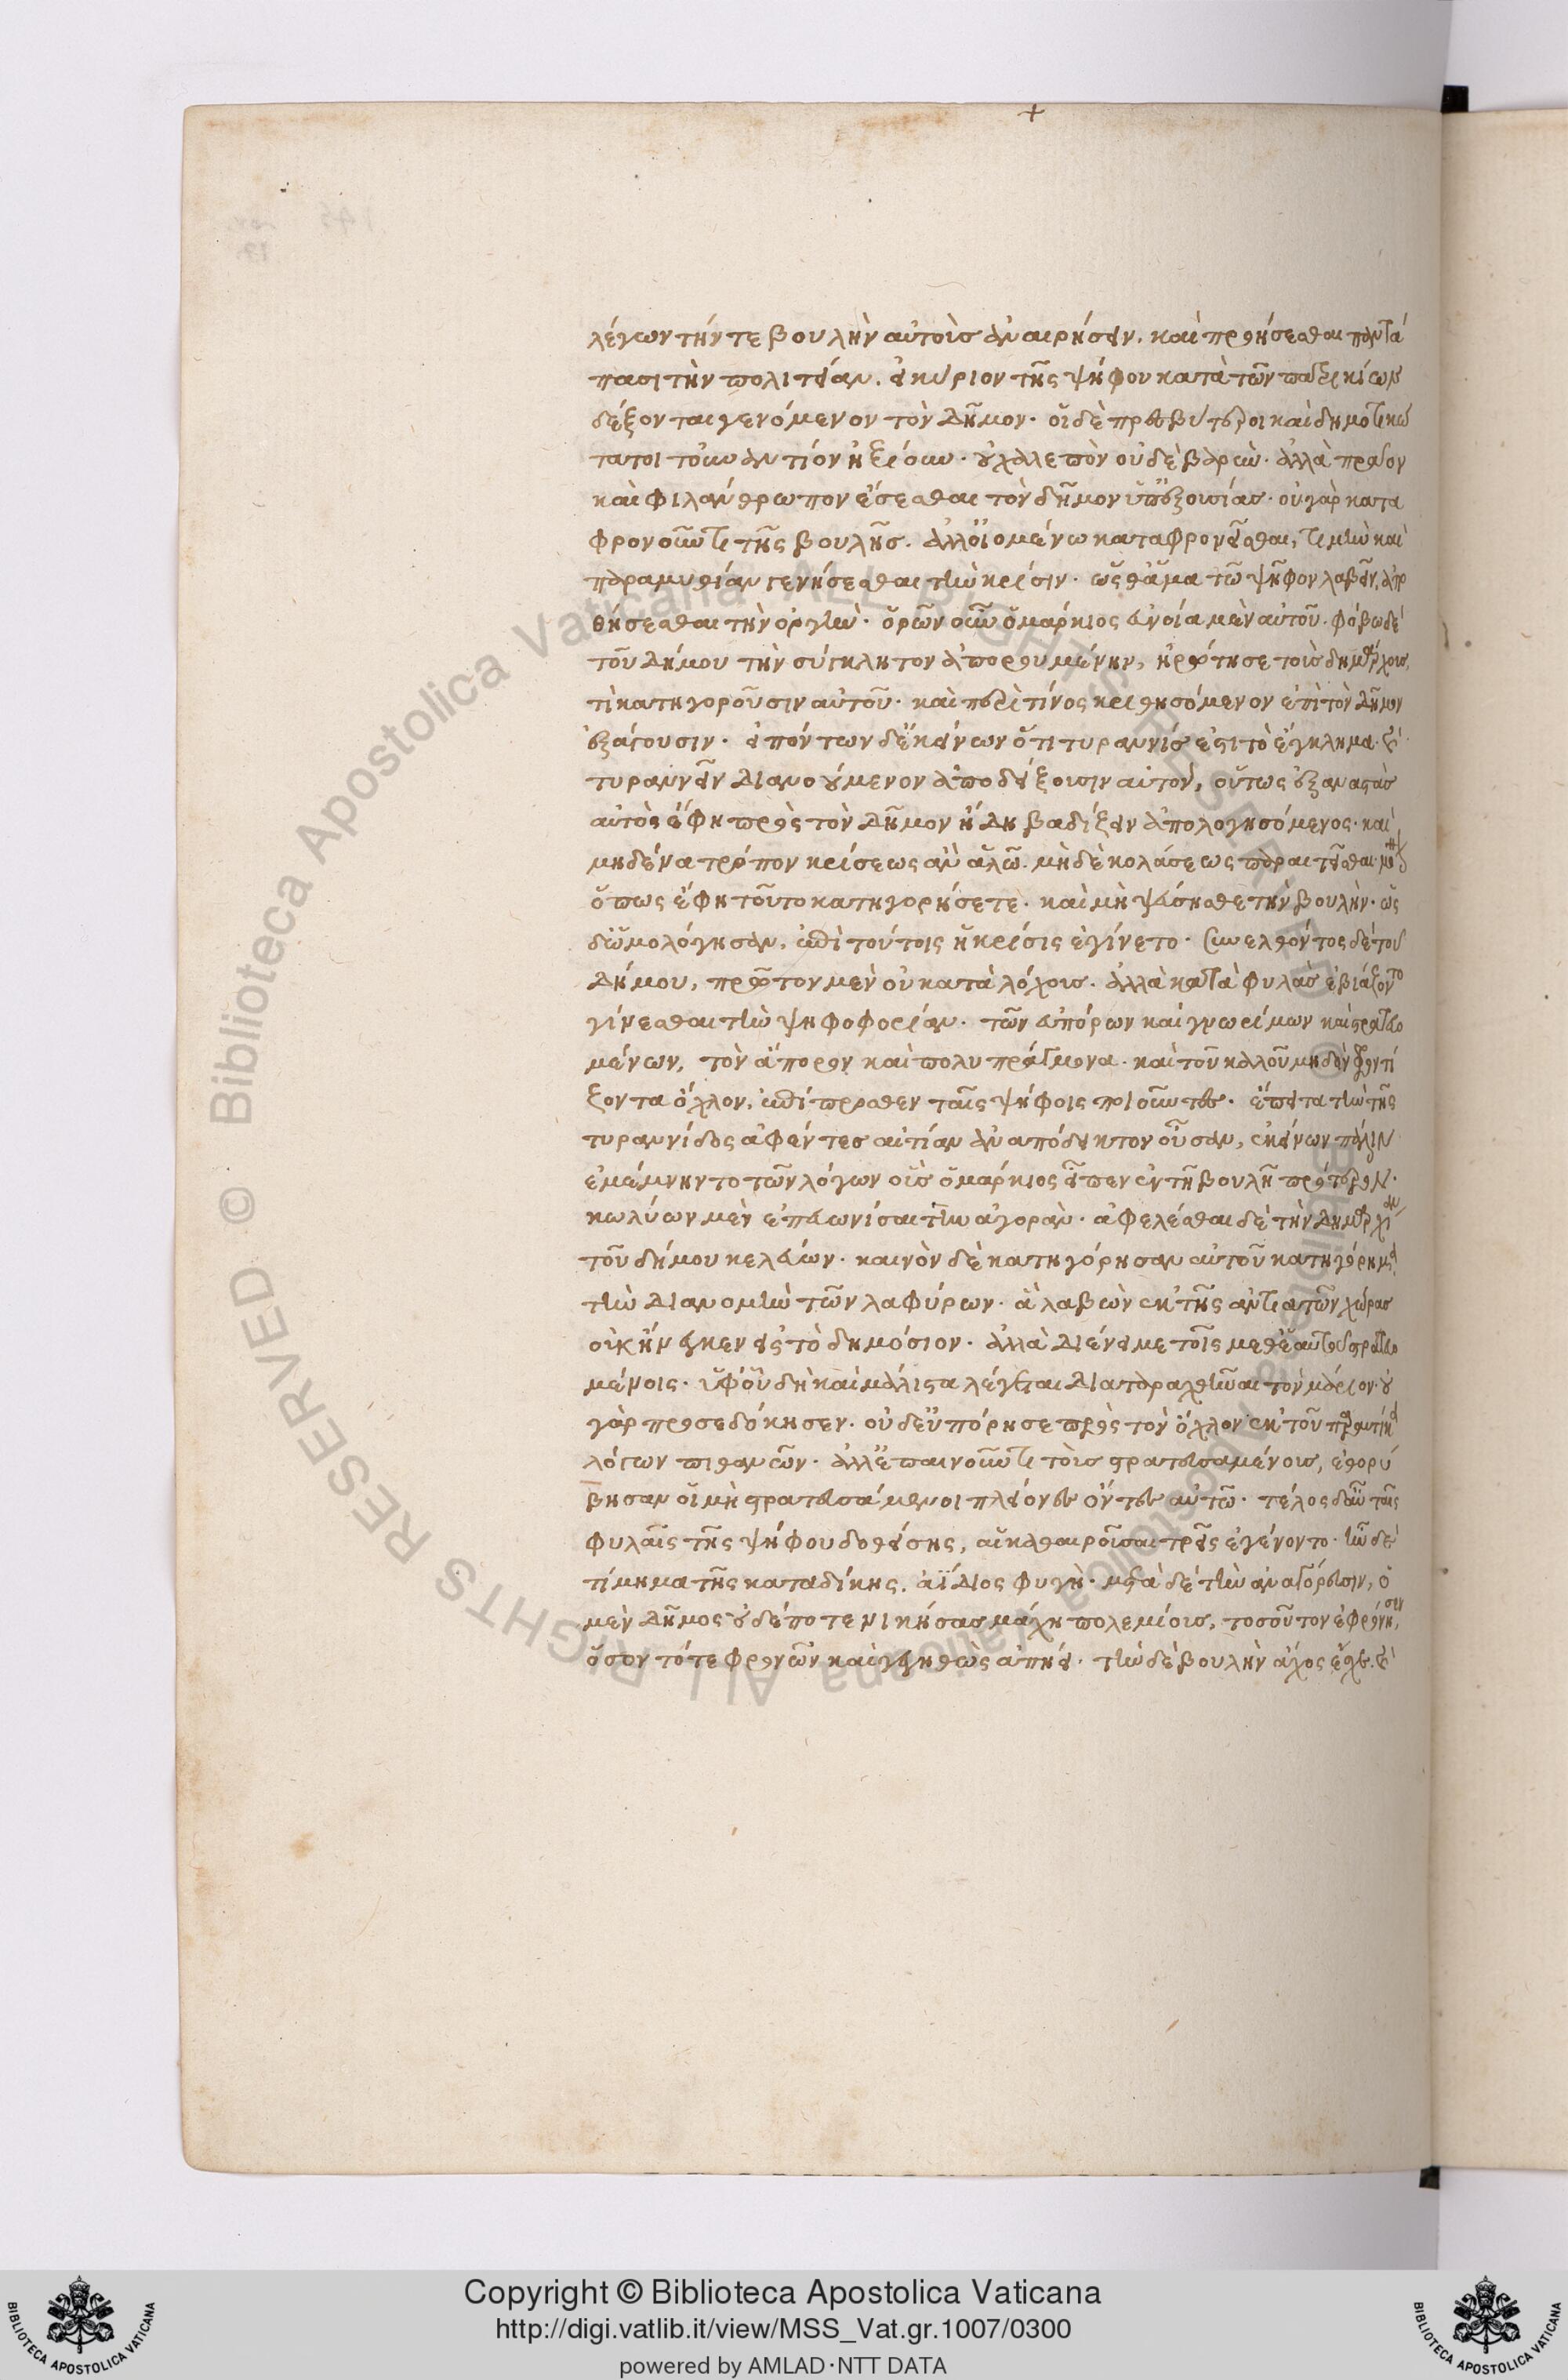 λέγων τήν τε βουλὴν αὐτοῖς ἀναιρήσειν. καὶ προήσεσθαι παντά
πασι τὴν πολιτείαν. εἰ κύριον τῆς ψήφου κατὰ τῶν πατρικίων
δέξονται γενόμενον τὸν δῆμον. οἱ δὲ πρεσβύτεροι καὶ δημοτικώ
τατοι τοὐναντίον ἠξίουν. οὐ χαλεπὸν οὐδὲ βαρὺν. ἀλλὰ πρᾶον
καὶ φιλάνθρωπον ἔσεσθαι τὸν δῆμον ὑπ' ἐξουσίας. οὐ γὰρ κατα
φρονοῦντι τῆς βουλῆς. ἀλλ' οἰομένω καταφρονεῖσθαι, τιμὴν καὶ
παραμυθίαν γενήσεσθαι τὴν κρίσιν. ὥσθ' ἅμα τῶ ψῆφον λαβεῖν, ἀπο
θήσεσθαι τὴν ὀργὴν. ὁρῶν οὖν ὁ μάρκιος εὐνοία μὲν αὐτοῦ. φόβω δὲ
τοῦ δήμου τὴν σύγκλητον ἀπορουμένην, ἠρώτησε τοὺς δημάρχους,
τί κατηγοροῦσιν αὐτοῦ. καὶ περὶ τίνος κριθησόμενον ἐπὶ τὸν δῆμον
ἐξάγουσιν. εἰπόντων δ' ἐκείνων ὅτι τυραννίς ἐστι τὸ ἔγκλημα. καὶ
τυραννεῖν διανοούμενον ἀποδείξουσιν αὐτόν, οὕτως ἐξαναστὰς
αὐτὸς ἔφη πρὸς τὸν δῆμον ἤδη βαδίζειν ἀπολογησόμενος. καὶ
μηδένα τρόπον κρίσεως ἂν ἁλῶ. μὴ δὲ κολάσεως παραιτεῖσθαι. μόνον
ὅπως ἔφη τοῦτο κατηγορήσετε. καὶ μὴ ψεύσησθε τὴν βουλὴν. ὡς
δ' ὡμολόγησαν, ἐπὶ τούτοις ἡ κρίσις ἐγίνετο. συνελθόντος δὲ τοῦ
δήμου, πρῶτον μὲν οὐ κατὰ λόχους. ἀλλὰ κατὰ φυλὰς ἐβιάζοντο
γίνεσθαι τὴν ψηφοφορίαν. τῶν εὐπόρων καὶ γνωρίμων καὶ στρατευο
μένων, τὸν ἄπορον καὶ πολυπράγμονα. καὶ τοῦ καλοῦ μηδὲν φροντί
ζοντα ὄχλον, ἐπίπροσθεν ταῖς ψήφοις ποιοῦντες. ἔπειτα τὴν τῆς
τυραννίδος ἀφέντες αἰτίαν ἀναπόδεικτον οὖσαν, ἐκείνων πάλιν
ἐμέμνηντο τῶν λόγων οὓς ὁ μάρκιος εἶπεν ἐν τῆ βουλῆ πρότερον.
κωλύων μὲν ἐπευωνίσαι τὴν ἀγορὰν. ἀφελέσθαι δὲ τὴν δημαρχίαν
τοῦ δήμου κελεύων. καινὸν δὲ κατηγόρησαν αὐτοῦ κατηγόρημα
τὴν διανομὴν τῶν λαφύρων. ἃ λαβὼν ἐκ τῆς ἀντιατῶν χώρας
οὐκ ἀνήνεγκεν εἰς τὸ δημόσιον. ἀλλὰ διένειμε τοῖς μεθ' ἑαυτοῦ στρατευο
μένοις. ὑφ' οὗ δὴ καὶ μάλιστα λέγεται διαταραχθῆναι τὸν μάρκιον. οὐ
γὰρ προσεδόκησεν. οὐδ' εὐπόρησε πρὸς τὸν ὄχλον ἐκ τοῦ παραυτίκα
λόγων πιθανῶν. ἀλλ' ἐπαινοῦντι τοὺς στρατευσαμένους, ἐθορύ
βησαν οἱ μὴ στρατευσάμενοι πλείονες ὄντες αὐτῶ. τέλος δ' οὖν ταῖς
φυλαῖς τῆς ψήφου δοθείσης, αἱ καθαιροῦσαι τρεῖς ἐγένοντο. ἦν δὲ
τίμημα τῆς καταδίκης. ἀΐδιος φυγὴ. μετὰ δὲ τὴν ἀναγόρευσιν, ὁ
μὲν δῆμος οὐδέποτε νικήσας μάχη πολεμίους, τοσοῦτον ἐφρόνησεν,
ὅσον τότε φρονῶν καὶ γεγηθὼς ἀπήει. τὴν δὲ βουλὴν ἄχος ἔσχε. καὶ
Copyright © Biblioteca Apostolica Vaticana
http://digi.vatlib.it/view/MSS_Vat.gr.1007/0300
powered by AMLAD·NTT DATA
BIBLIOTECA APOSTOLICA VATICANA
BIBLIOTECA APOSTOLICA VATICANA
© Biblioteca Apostolica Vaticana ALL RIGHTS RESERVED
© Biblioteca Apostolica Vaticana ALL RIGHTS RESERVED